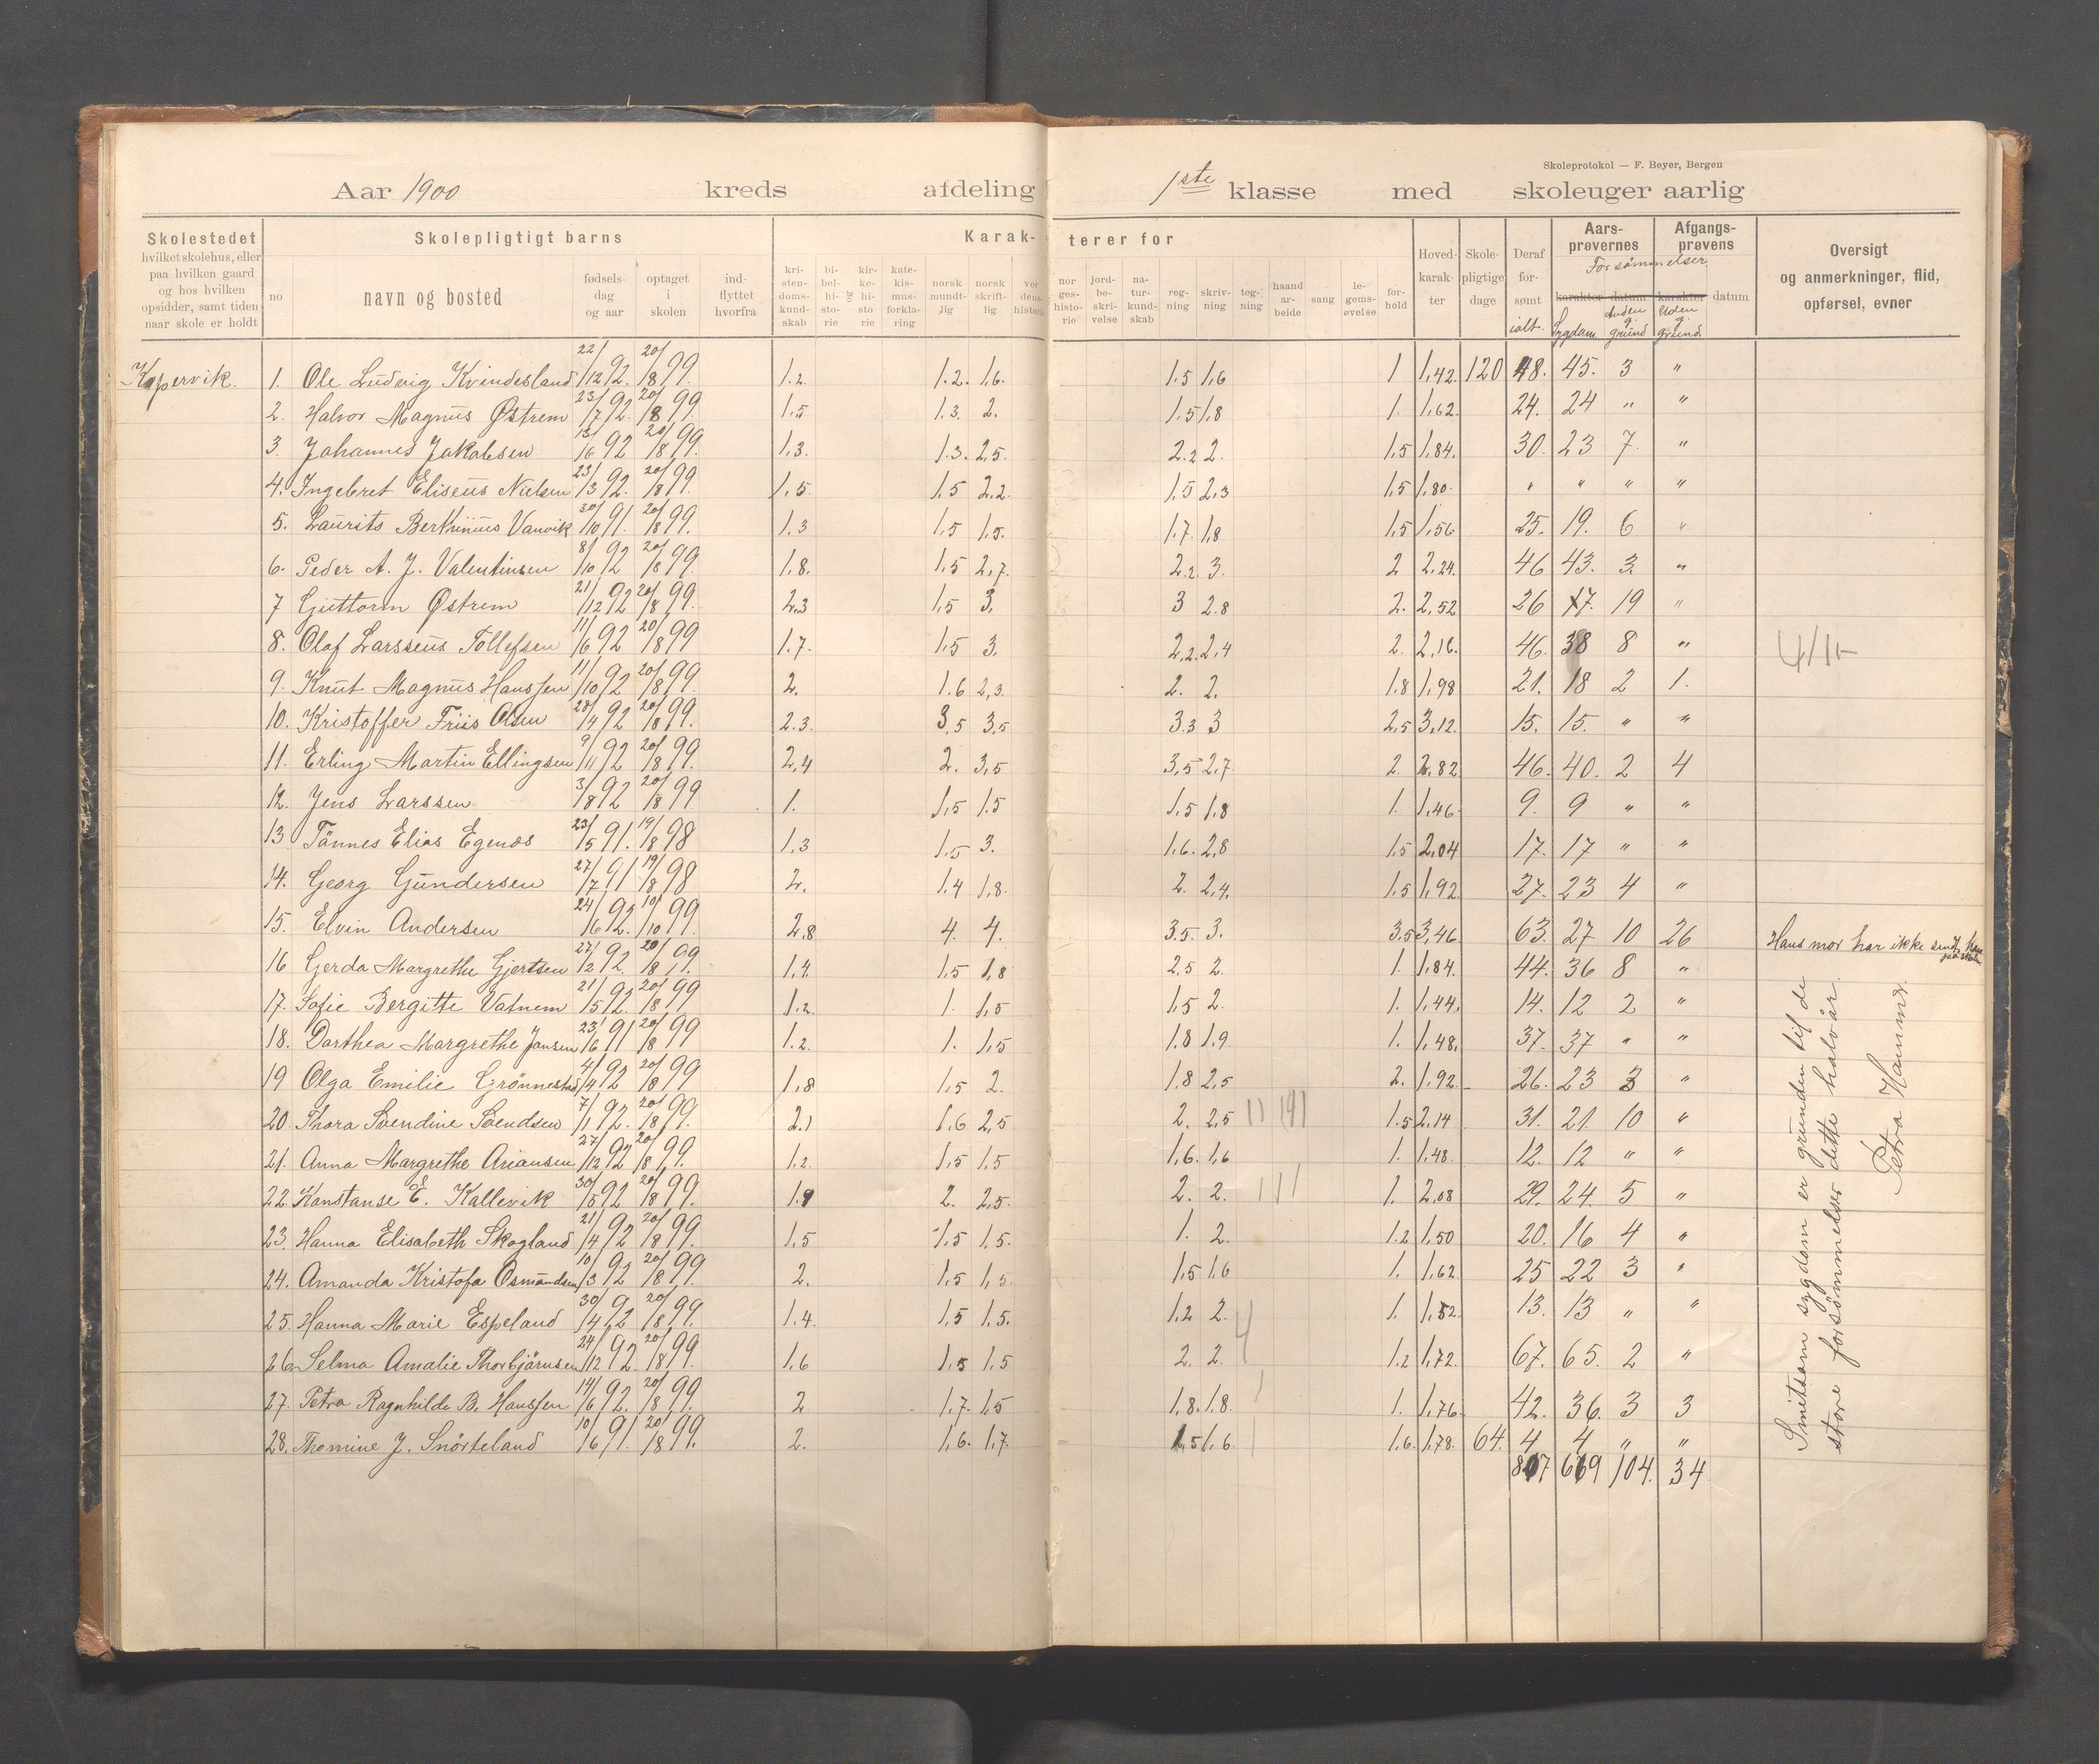 Skoleprotokol — F. Beyer, Bergen
Aar 1900 kreds afdeling 1ste klasse med skoleuger aarlig
Skolestedet hvilket skolehus, eller paa hvilken gaard og hos hvilken opsidder, samt tiden naar skole er holdt
Skolepligtigt barns
no navn og bosted fødsels- dag og aar optaget i skolen ind- flyttet hvorfra
Karak- terer for
kri- sten- doms- kund- skab bi- bel- hi- sto- rie kir- ke- hi- sto rie kate- kis- mus- forkla- ring norsk mundt- lig norsk skrift- lig ver dens- historie nor ges- histo- rie jord- be- skri- velse na- tur- kund- skab reg- ning skriv- ning teg- ning haand ar- beide sang le- gems- øvelse for- hold
Hoved- karak- ter Skole- pligtige dage Deraf for- sømt ialt.
Aars- prøvernes Afgangs- prøvens
Forsømmelser.
karakter datum karakter datum
Sygdom Anden g. grund Uden g. grund.
Oversigt og anmerkninger, flid, opførsel, evner
Kopervik. 1. Ole Ludvig Kvindesland 22/12 92. 20/8 99. 1.2. 1.2. 1,6. 1.5 1,6 1 1,42. 120 48. 45. 3 "
2. Halvor Magnus Østrem 23/7 92. 20/8 99 1,5 1.3. 2. 1.5 1,8 1. 1,62. 24. 24 " "
3. Johannes Jakobsen 13/6 92 20/8 99. 1,3. 1.3. 2,5. 2.2 2. 1,5 1,84. 30. 23 7. "
4. Ingebret Eliseus Nielsen 23/3 92. 20/8 99. 1,5. 1,5 2,2. 1,5 2,3 1,5 1,80. " " " "
5. Laurits Berthinius Vanvik 30/10 91. 20/8 99. 1,3 1,5 1,5. 1,7. 1,8 1,5 1,56 25. 19. 6 "
6. Peder A. J. Valentinsen 8/10 92 20/8 99. 1,8. 1,5 2,7. 2.2. 3. 2 2,24. 46 43. 3. "
7 Guttorm Østrem 21/12 92 20/8 99. 2,3 1,5 3. 3 2.8 2. 2,52 26 17. 19 "
8. Olaf Larsseus Tollefsen 11/6 92 20/8 99 1.7. 1,5 3. 2,2. 2,4 2. 2,16. 46. 38 8 "
9. Knut Magnus Hanssen 11/10 92 20/8 99. 2. 1.6 2,3. 2. 2. 1.8 1,98 21. 18 2 1.
10. Kristoffer Friis Olsen 28/4 92 20/8 99. 2.3. 3,5 3,5 3.3 3 2,5 3,12. 15. 15. " "
11. Erling Martin Ellingsen 9/11 92 20/8 99. 2,4 2. 3,5 3,5 2,7. 2. 2,82 46. 40. 2 4
12. Jens Larssen 3/8 92 20/8 99 1. 1,5 1.5 1,5 1,8 1. 1,46. 9. 9 " "
13 Tönnes Elias Egenæs 23/5 91. 19/8 98 1,3 1.5 3. 1.6. 2,8 1.5 2,04 17. 17 " "
14. Georg Gundersen 27/7 91 19/8 98 2. 1,4 1,8. 2. 2,4. 1,5 1,92. 27. 23 4 "
15. Elvin Andersen 24/6 92. 10/10 99. 2,8 4. 4. 3.5. 3. 3.5 3,46 63. 27 10 26 Hans mor har ikke sendt ham på skolen
16 Gerda Margrethe Gjertsen 27/12 92. 20/8 99. 1,4. 1,5 1,8 2,5 2. 1. 1,84. 44. 36 8 "
17. Sofie Bergitte Vatnem 21/5 92. 20/8 99 1.2. 1. 1,5 1,5 2. 1. 1,44. 14. 12 2 "
18. Dorthea Margrethe Jansen 23/6 91 20/8 99 1.2. 1. 1,5 1.8 1.9 1. 1,48. 37. 37 " "
19 Olga Emilie Grønnestad 4/4 92 20/8 99 1,8 1,5 2. 1.8 2,5 2. 1,92. 26. 23 3 "
20. Thora Svendine Svendsen 7/1 92. 20/8 99. 2.1 1,6 2,5 2. 2,5 1.5 2,14 31. 21. 10 "
21. Anna Margrethe Ariansen 27/12 92 20/8 99. 1,2. 1,5 1,5 1,6. 1,6 1. 1,48. 12. 12 " "
22. Konstanse E. Kallevik 30/5 92 20/8 99. 1.9 2. 2,5. 2. 2. 1. 2,08 29. 24. 5 "
23. Hanna Elisabeth Skogland 21/4 92 20/8 99. 1,5 1,5 1.5. 1. 2. 1.2 1,50 20. 16 4 "
24. Amanda Kristofa Osmundsen 10/3 92 20/8 99 2. 1,5 1,5 1,5 1.6 1. 1,62. 25 22 3 "
25. Hanna Marie Espeland 30/4 92 20/8 99. 1.4. 1,5 1,5. 1,2 2. 1. 1,52. 13. 13 " "
26. Selma Amalie Thorbjörnsen 24/12 92. 20/8 99. 1.6 1,5 1.5 2. 2. 1.2 1,72. 67. 65. 2 "
27. Petra Ragnhilde B. Hanssen 14/6 92. 20/8 99. 2 1,7. 1.5 1,8. 1.8. 1. 1,76. 42. 36. 3 3
28. Thomine J. Snörteland 10/6 91. 20/8 99. 2. 1,6. 1.7. 1.5 1,6. 1,6. 1,78. 64. 4 4 " "
807 669 104. 34
Smitsom sygdom er grunden til de
store forsømmelser dette halvår.
Petra Hamnø.